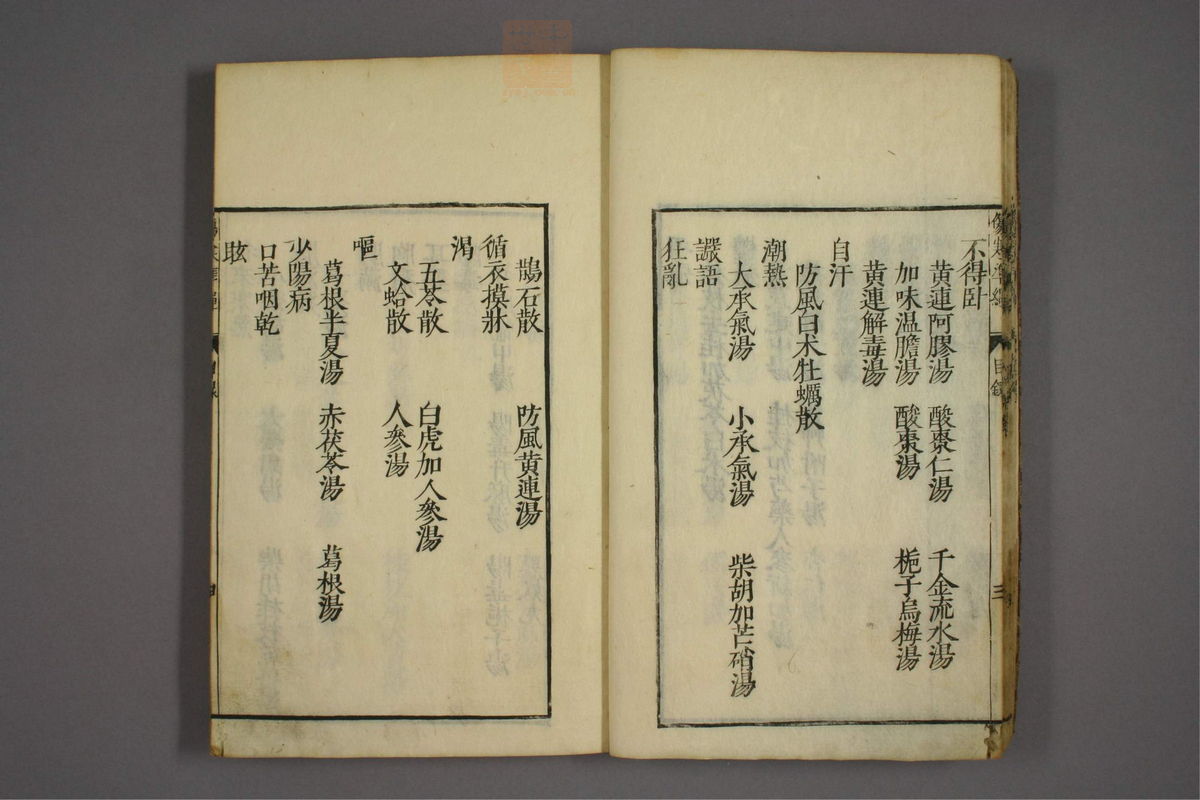 不得臥
黃連阿膠湯 酸棗仁湯 千金流水湯
加味温膽湯 酸棗湯 梔子烏梅湯
黃連解毒湯
自汗
防風白朮牡蠣散
潮熱
大承氣湯 小承氣湯 柴胡加芒硝湯
譫語
狂亂
目錄
三
鵲石散 防風黃連湯
循衣摸牀
渴
五苓散 白虎加人參湯
文蛤散 人參湯
嘔
葛根半夏湯 赤茯苓湯 葛根湯
少陽病
口苦咽乾
眩